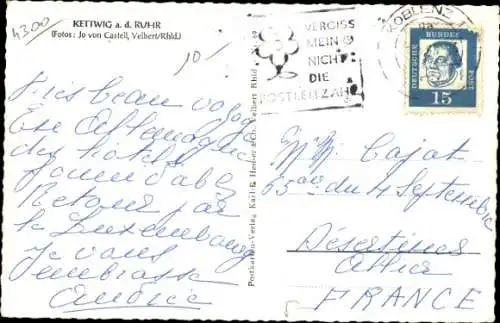 4300
KETTWIG a. d. RUHR
(Fotos: Jo von Castell, Velbert/Rhld.)
10
VERGISS
MEIN
NICHT
DIE
POSTLEITZAHL
KOBLENZ
DEUTSCHE BUNDESPOST
15
Très beau voyage
Allemagne
des hôtels
formidables
Retour par
le Luxembourg
Je vous
embrasse
Postkarten-Verlag Karl E. Heeser & Co., Velbert Rhld.
Mr Mme Cajat
55 du 4 Septembre
Désertines
Allier
FRANCE